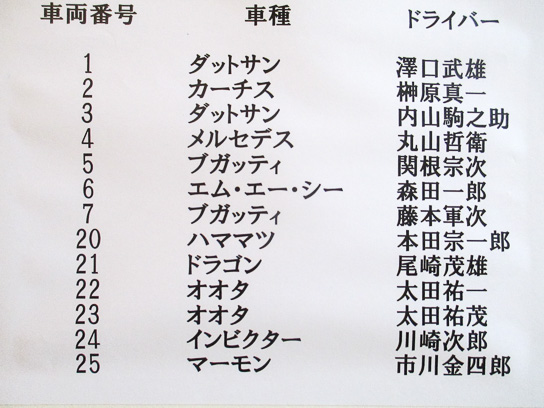 車両番号 車種 ドライバー
1 ダットサン 澤口武雄
2 カーチス 榊原真一
3 ダットサン 内山駒之助
4 メルセデス 丸山哲衛
5 ブガッティ 関根宗次
6 エム・エー・シー 森田一郎
7 ブガッティ 藤本軍次
20 ハママツ 本田宗一郎
21 ドラゴン 尾崎茂雄
22 オオタ 太田祐一
23 オオタ 太田祐茂
24 インビクター 川崎次郎
25 マーモン 市川金四郎